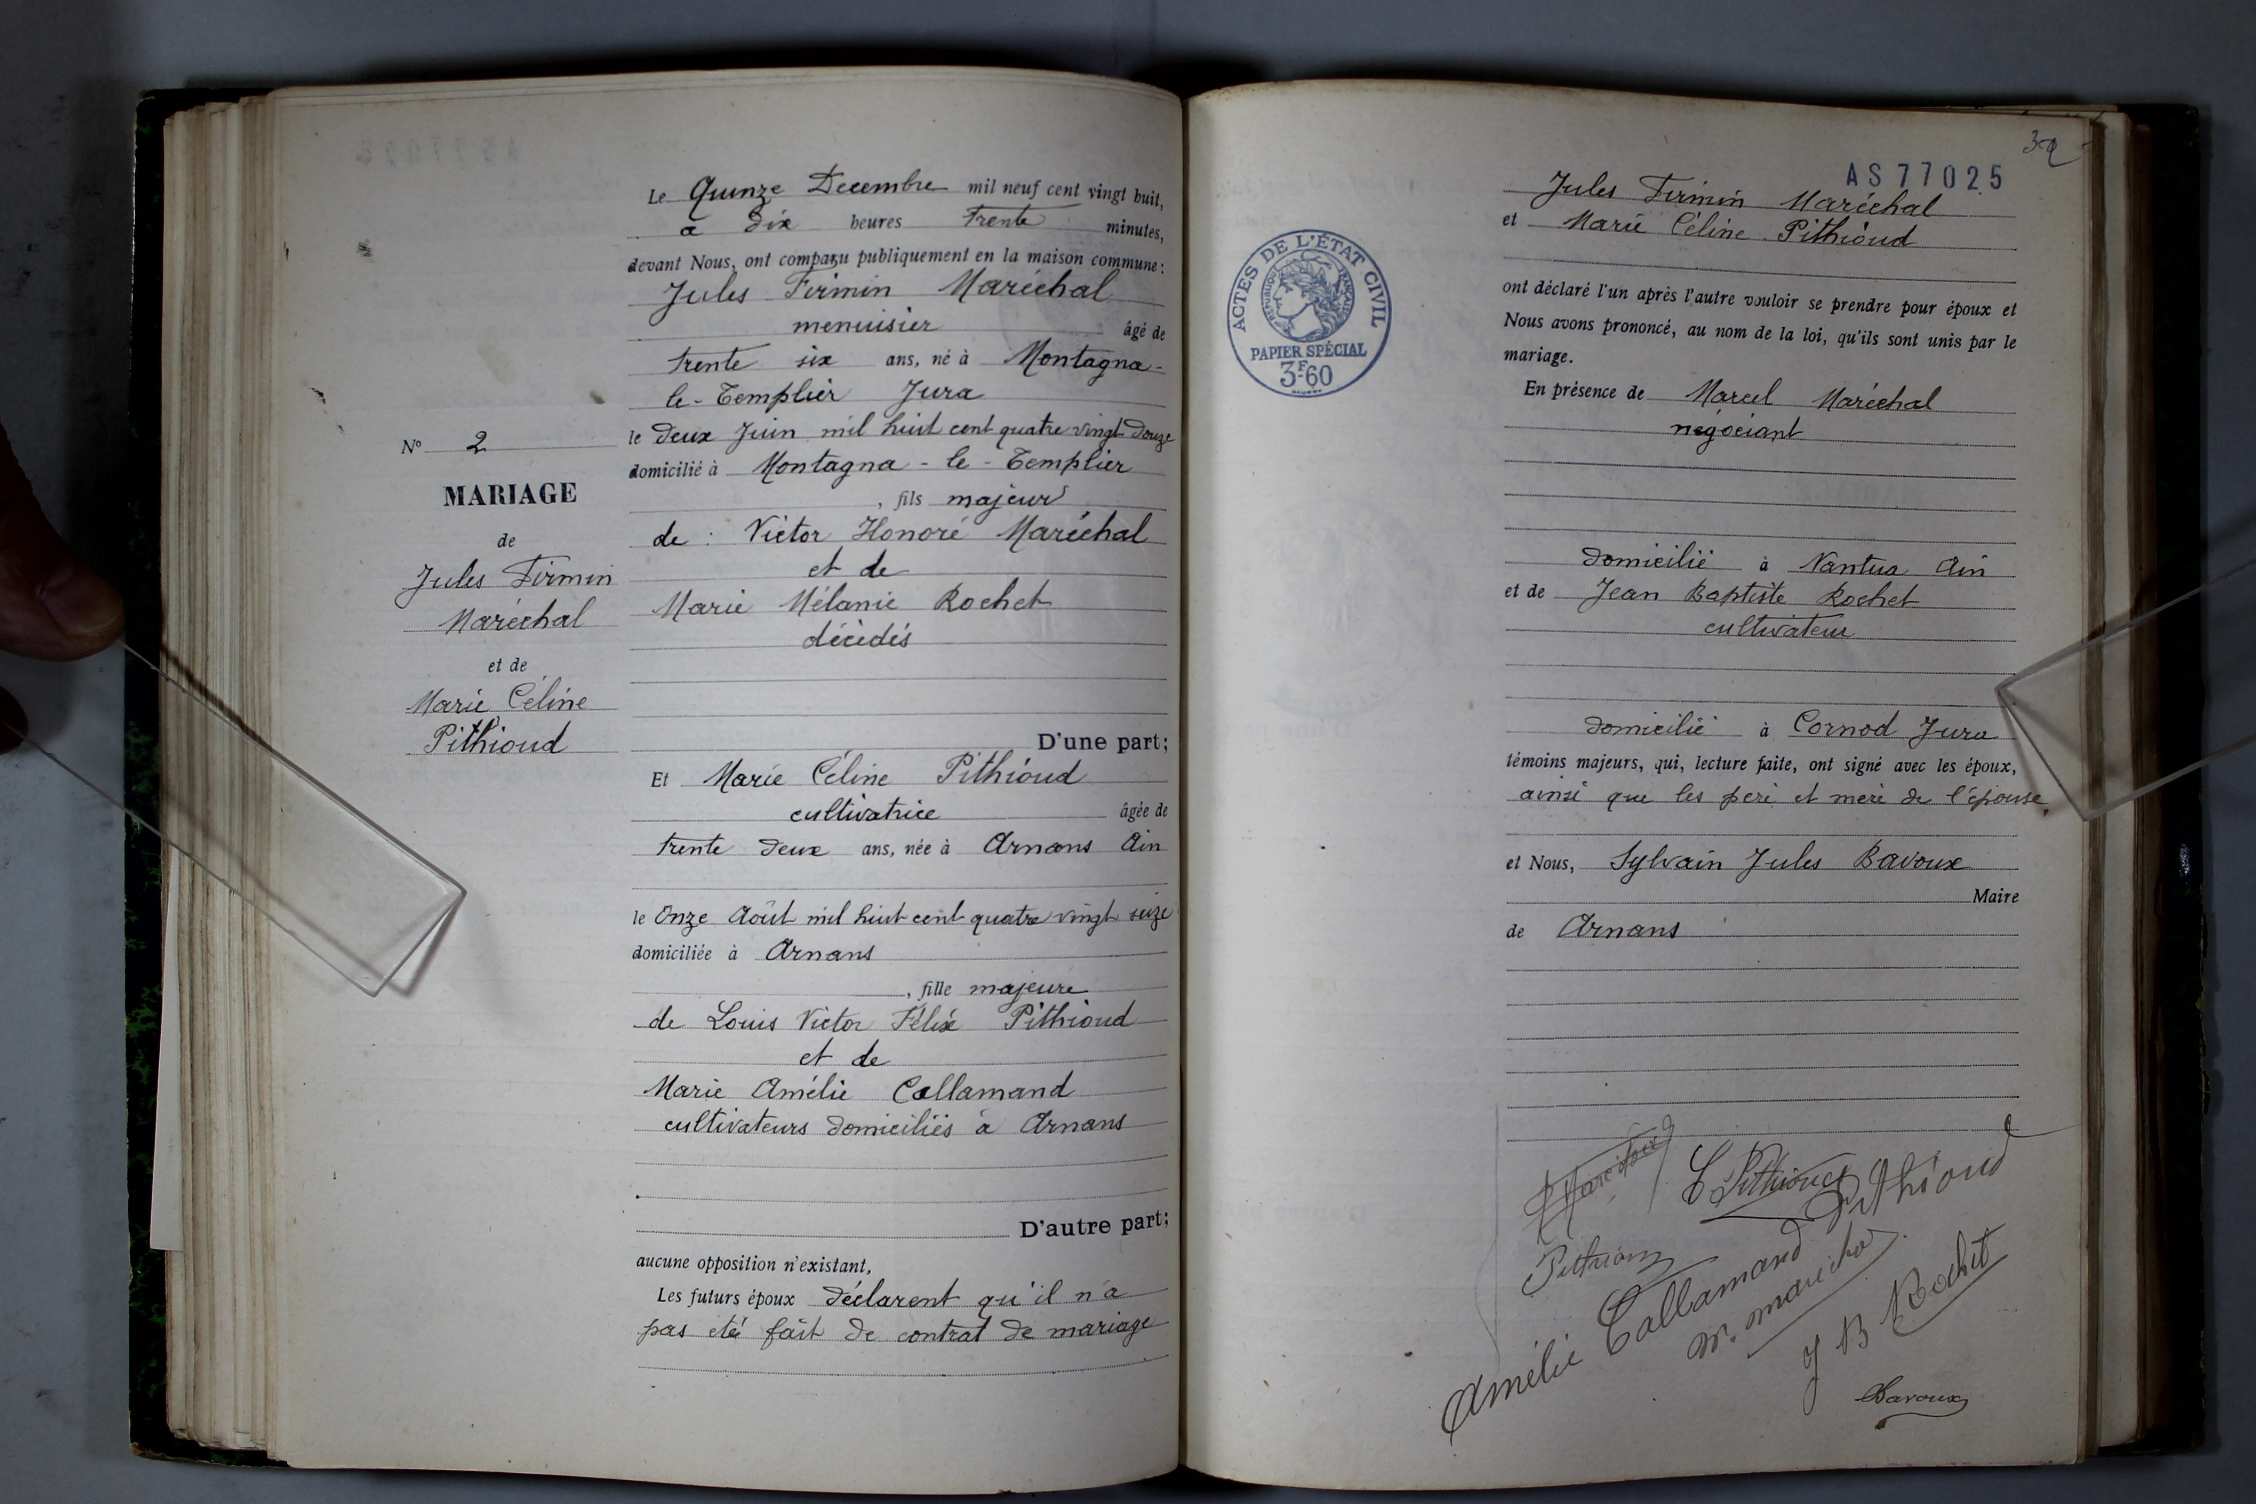 Le Quinze Decembre mil neuf cent vingt huit,
a dix heures trente minutes,
devant Nous, ont comparu publiquement en la maison commune:
Jules Firmin Maréchal
menuisier âgé de
trente six ans, né à Montagna-
le-Templier Jura
le deux Juin mil huit cent quatre vingt douze
domicilié à Montagna-le-Templier
, fils majeur
de: Victor Honoré Maréchal
et de
Marie Mélanie Rochet
décèdés
D'une part;
Et Marie Céline Pithioud
cultivatrice âgée de
trente deux ans, née à Arnans Ain
le Onze Août mil huit cent quatre vingt seize
domiciliée à Arnans
, fille majeure
de Louis Victor Félix Pithioud
et de
Marie Amélie Callamand
cultivateurs domiciliés à Arnans
D'autre part;
aucune opposition n'existant,
Les futurs époux déclarent qu'il n'a
pas eté fait de contrat de mariage
N° 2
MARIAGE
de
Jules Firmin
Maréchal
et de
Marie Céline
Pithioud
32
AS77025
Jules Firmin Maréchal
et Marie Céline Pithioud
ACTES DE L'ÉTAT CIVIL
RÉPUBLIQUE FRANÇAISE
PAPIER SPÉCIAL
3F60
ont déclaré l'un après l'autre vouloir se prendre pour époux et
Nous avons prononcé, au nom de la loi, qu'ils sont unis par le
mariage.
En présence de Marcel Maréchal
négociant
domicilié à Nantua Ain
et de Jean Baptiste Rochet
cultivateur
domicilié à Cornod Jura
témoins majeurs, qui, lecture faite, ont signé avec les époux,
ainsi que les père et mère de l'épouse,
et Nous, Sylvain Jules Bavoux
Maire
de Arnans
C Pithioud
Pithioud
Pithioud
Amélie Callamand
J B Rochet
Bavoux